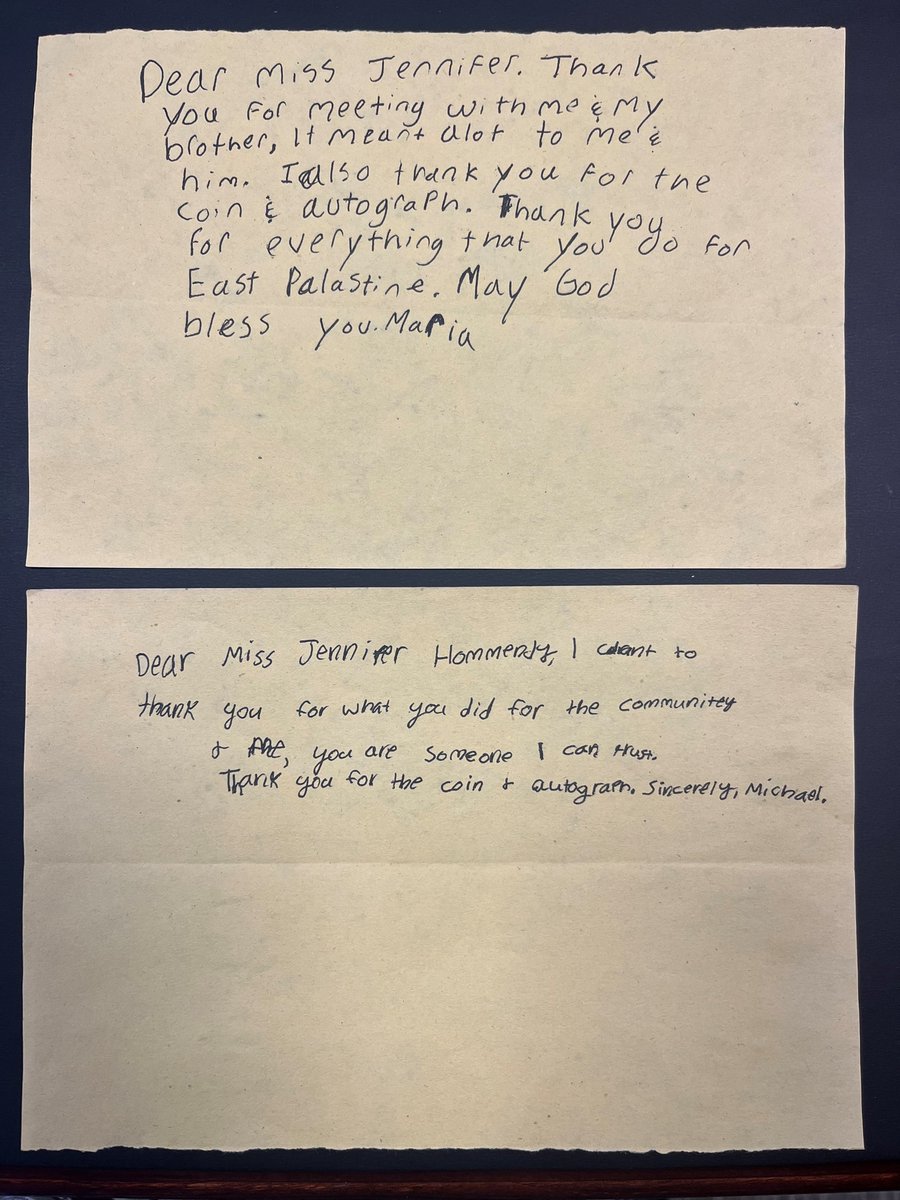 Dear Miss Jennifer. Thank
you for meeting with me & my
brother, It meant alot to me &
him. I also thank you for the
coin & autograph. Thank you
for everything that you do for
East Palastine. May God
bless you. Maria
Dear Miss Jennifer Hommendy, I want to
thank you for what you did for the communitey
& me, you are someone I can trust.
Thank you for the coin & autograph. Sincerely, Michael.